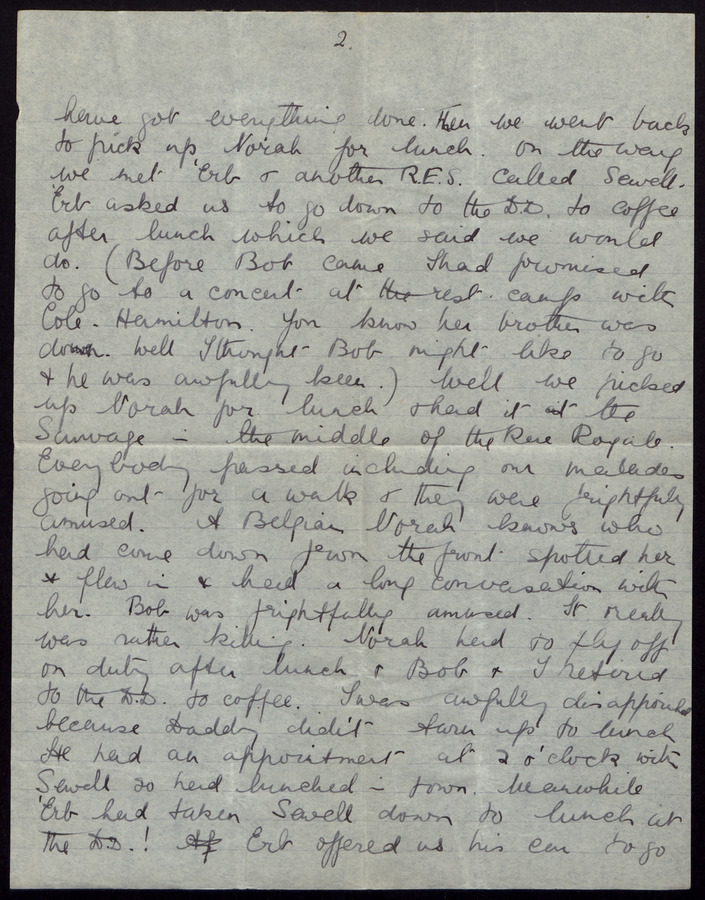 2.
have got everything done. Then we went back
to pick up Norah for lunch. On the way
we met 'Erb & another R.E.S. called Sewell.
'Erb asked us to go down to the D.D. to coffee
after lunch which we said we would
do. (Before Bob came I had promised
to go to a concert at the rest camp with
Cole-Hamilton. You know her brother was
down. Well I thought Bob might like to go
& he was awfully keen.) Well we picked
up Norah for lunch & had it at the
Sauvage in the middle of the Rue Royale.
Everybody passed including our malades
going out for a walk & they were frightfully
amused. A Belgian Norah knows who
had come down from the front spotted her
& flew in & had a long conversation with
her. Bob was frightfully amused. It really
was rather killing. Norah had to fly off
on duty after lunch & Bob & I retired
to the D.D. to coffee. I was awfully disappointed
because Daddy didn't turn up to lunch
He had an appointment at 2 o'clock with
Sewell so had lunched in town. Meanwhile
'Erb had taken Sewell down to lunch at
the D.D.! Erb offered us his car to go